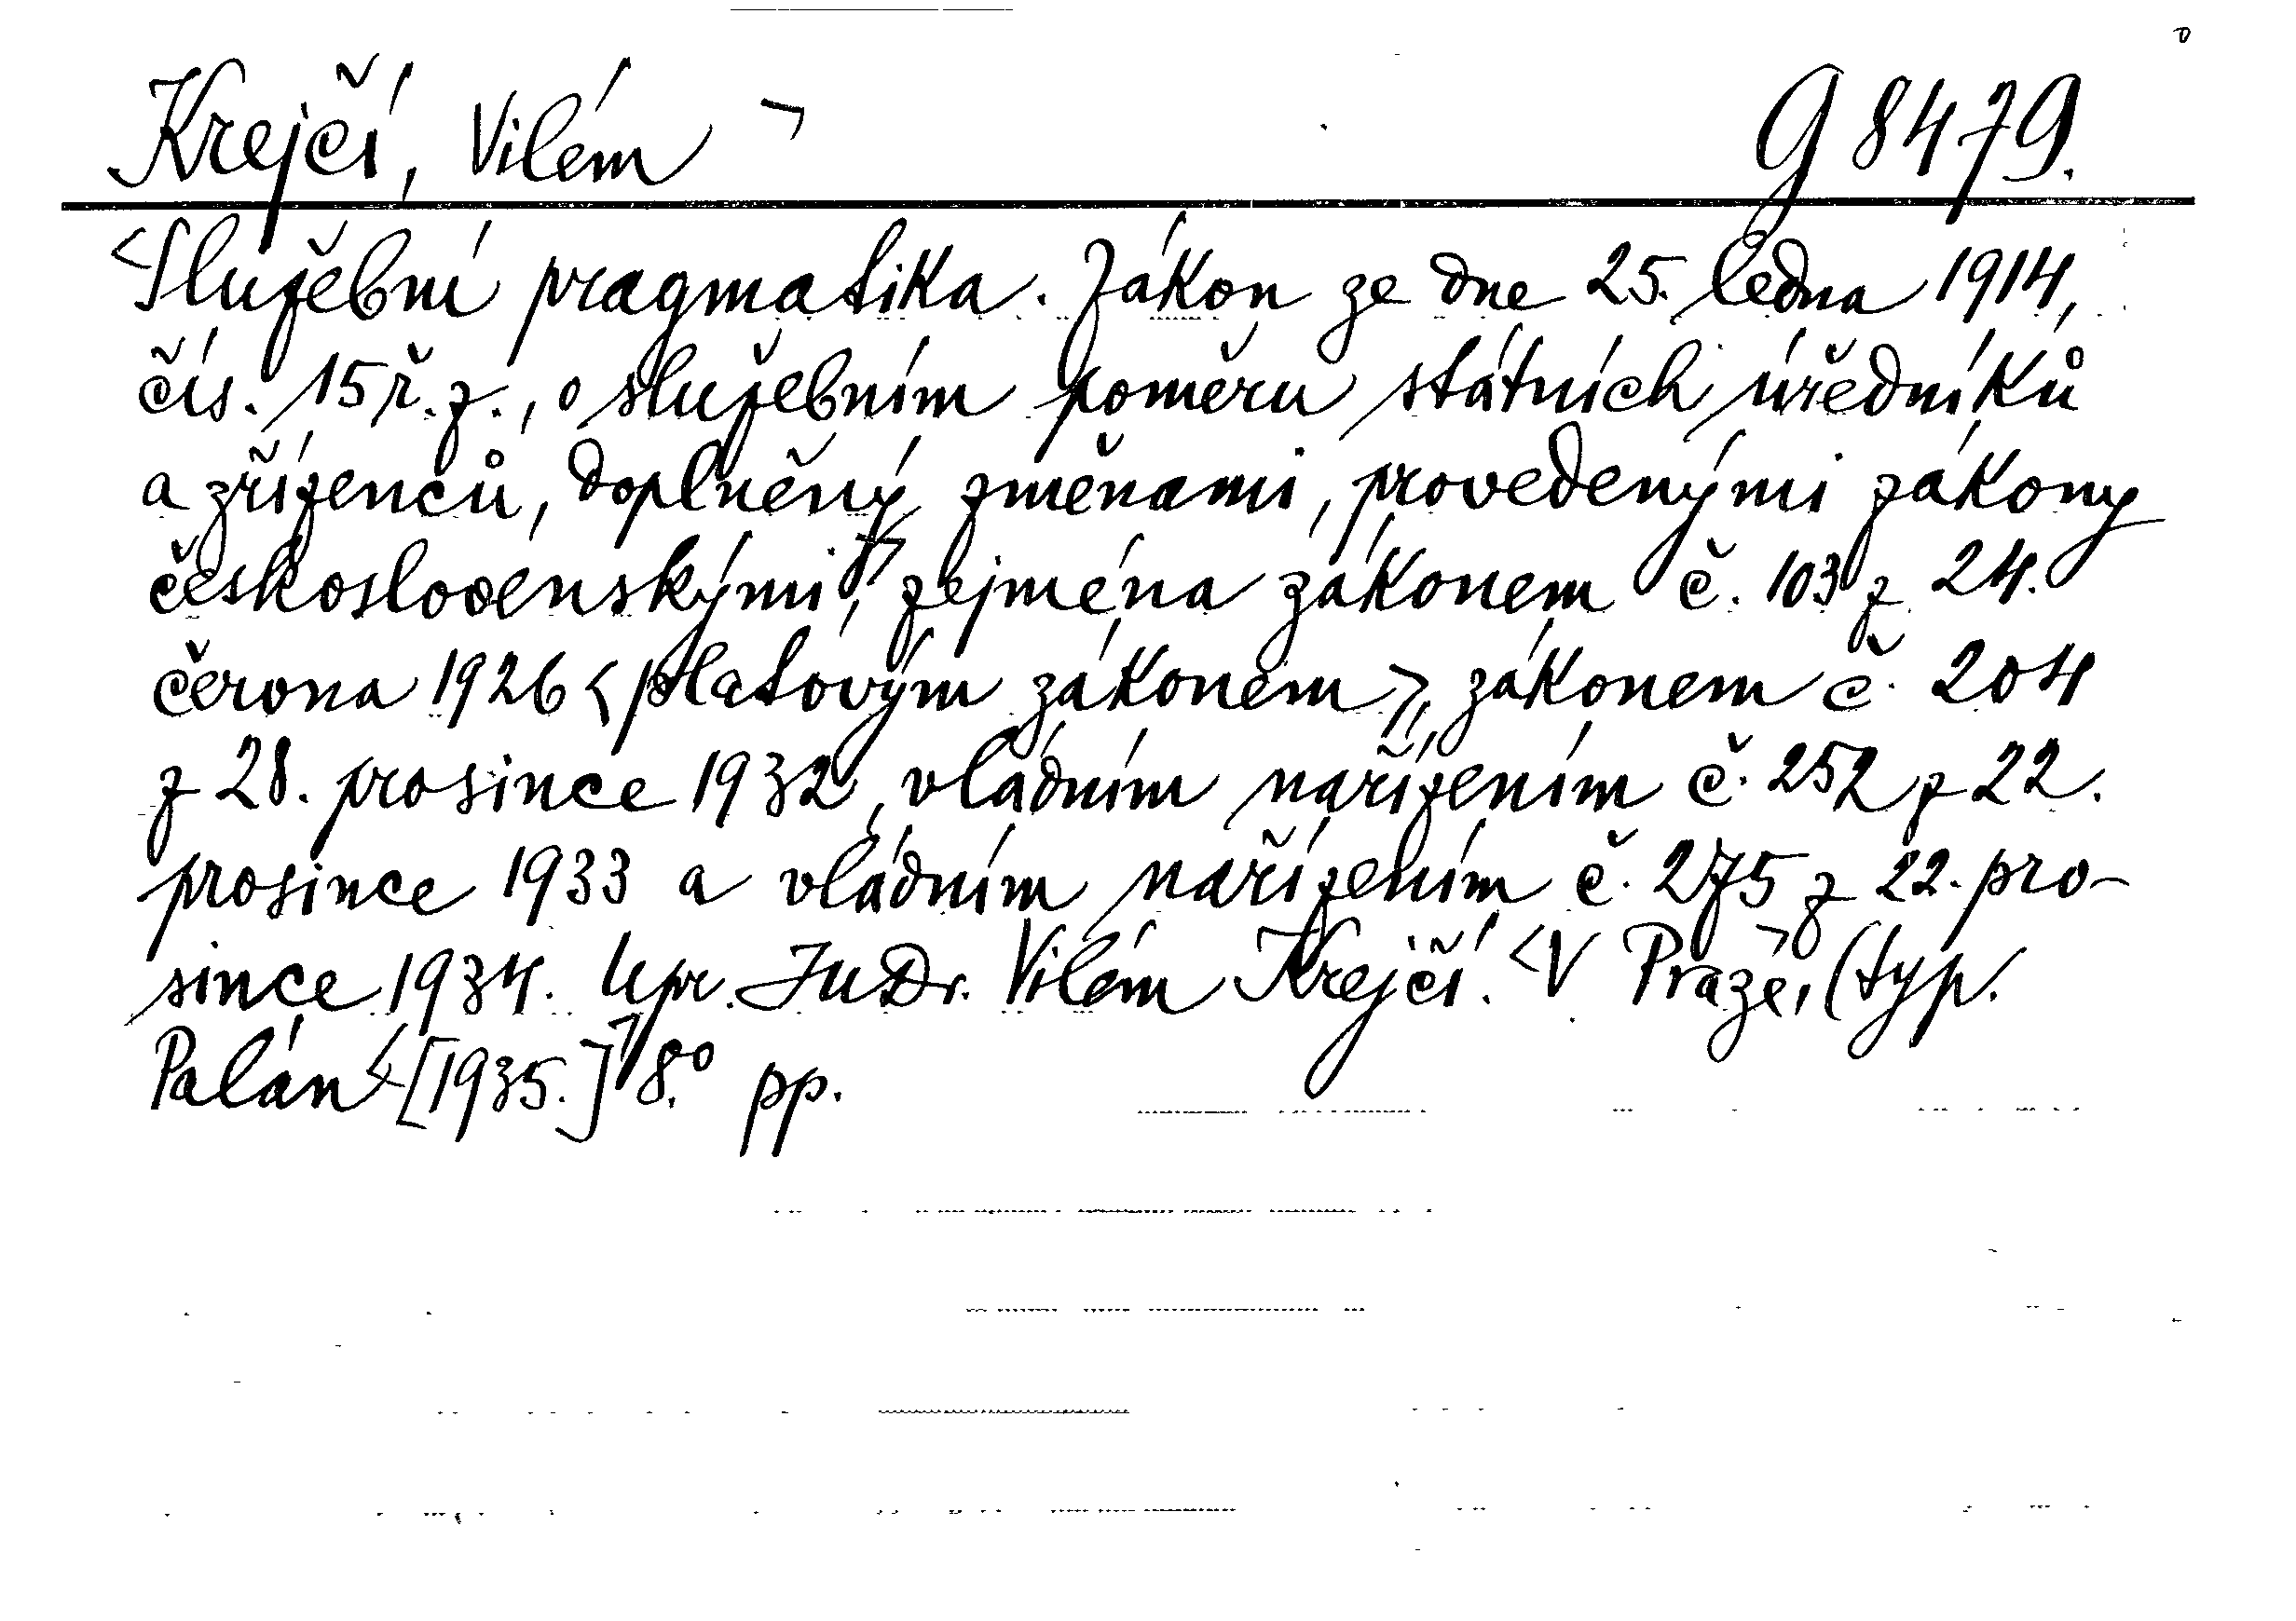 Krejčí, Vilém ¬ G 8479.
<Služební pragmatika. Zákon ze dne 25. ledna 1914,
čís. 15 ř. z., o služebním poměru státních úředníků
a zřízenců, doplněný změnami, provedenými zákony
československými, zejména zákonem č. 103 z 24.
června 1926 <platovým zákonem>, zákonem č. 204
z 28. prosince 1932, vládním nařízením č. 252 z 22.
prosince 1933 a vládním nařízením č. 275 z 22. pro-
since 1934. Upr. JuDr. Vilém Krejčí. <V Praze, (typ.
Palán <[1935.] 8.° pp.